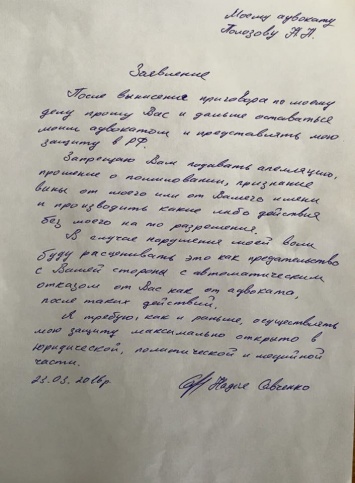 Моему адвокату
Полозову Н.Н.
Заявление
После вынисения приговора по моему
делу прошу Вас и дальше оставаться
моим адвокатом и представлять мою
защиту в РФ.
Запрещаю Вам подавать апелляцию,
прошение о помиловании, признание
вины от моего или от Вашего имени
и производить какие либо действия
без моего на то разрешения.
В случае нарушения моей воли
буду расценивать это как предательство
с Вашей стороны с автоматическим
отказом от Вас как от адвоката,
после таких действий.
Я требую, как и раньше, осуществлять
мою защиту максимально открыто в
юридической, политической и медийной
части.
23.03.2016р. Надія Савченко